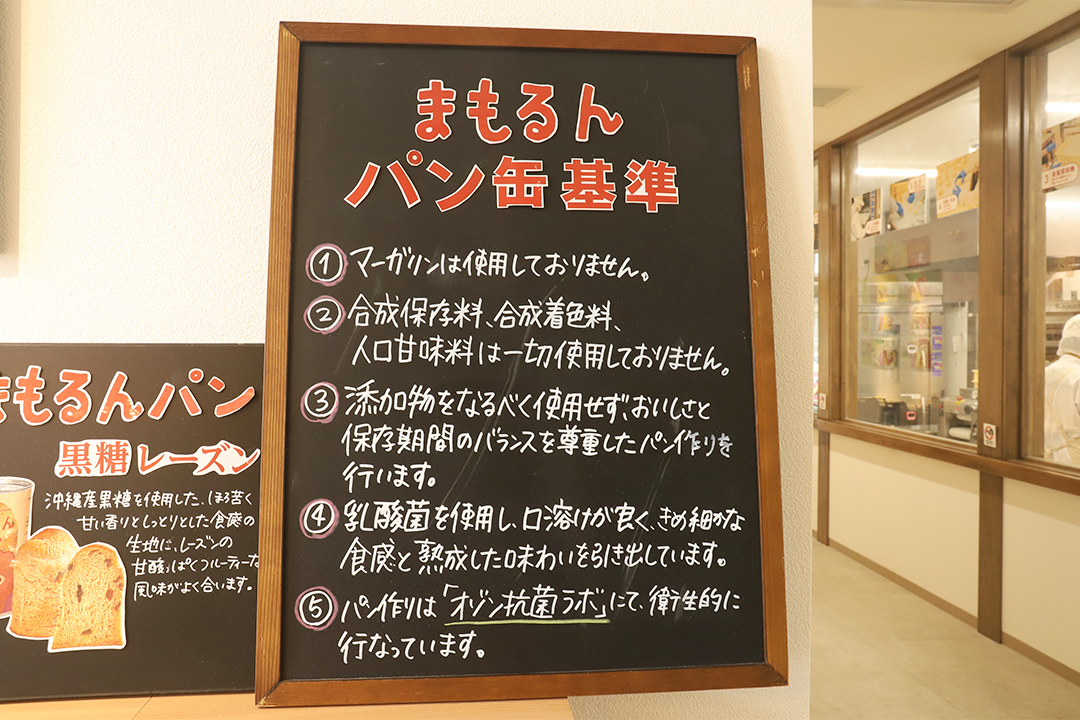 まもるん
パン缶基準
① マーガリンは使用しておりません。
② 合成保存料、合成着色料、
人口甘味料は一切使用しておりません。
③ 添加物をなるべく使用せず、おいしさと
保存期間のバランスを尊重したパン作りを
行います。
④ 乳酸菌を使用し、口溶けが良く、きめ細かな
食感と熟成した味わいを引き出しています。
⑤ パン作りは「オゾン抗菌ラボ」にて、衛生的に
行なっています。
まもるんパン
黒糖レーズン
沖縄産黒糖を使用した、ほろ苦く
甘い香りとしっとりとした食感の
生地に、レーズンの
甘酸っぱくフルーティーな
風味がよく合います。